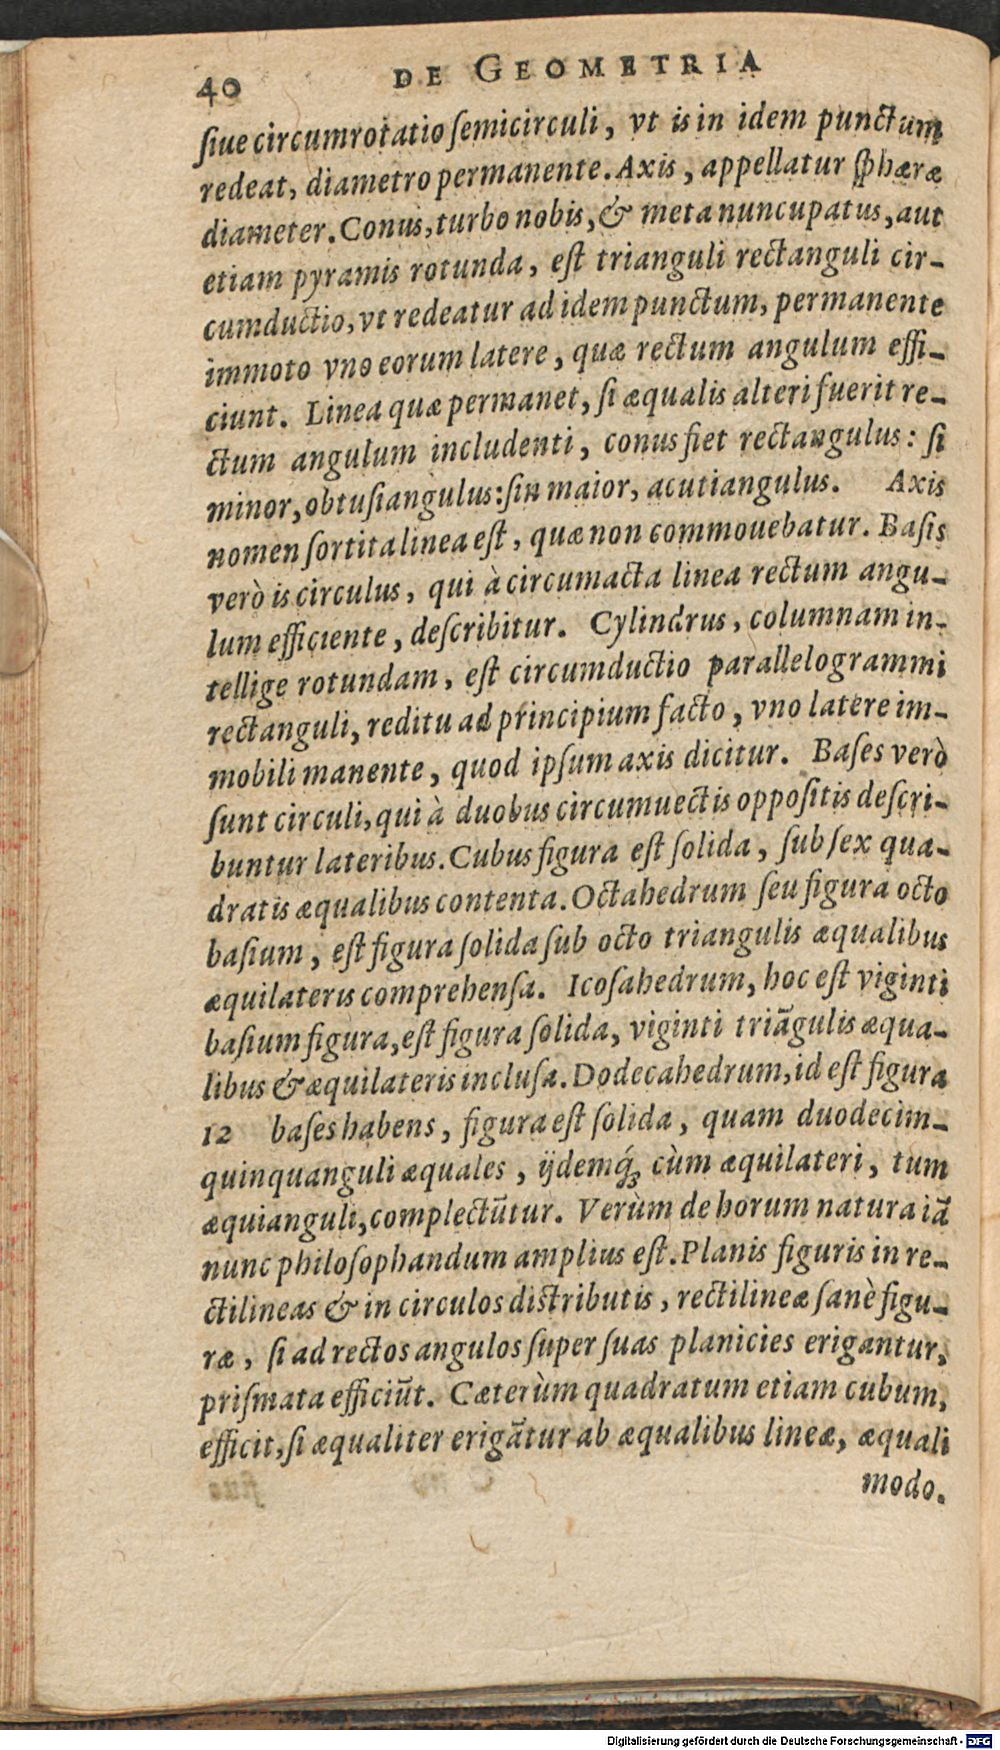 40 DE GEOMETRIA
ſiue circumrotatio ſemicirculi, vt is in idem punctum
redeat, diametro permanente. Axis, appellatur ſphæræ
diameter. Conus, turbo nobis, & meta nuncupatus, aut
etiam pyramis rotunda, eſt trianguli rectanguli cir-
cumductio, vt redeatur ad idem punctum, permanente
immoto vno eorum latere, quæ rectum angulum effi-
ciunt. Linea quæ permanet, ſi æqualis alteri fuerit re-
ctum angulum includenti, conus fiet rectangulus: ſi
minor, obtuſiangulus: ſin maior, acutiangulus. Axis
nomen ſortita linea eſt, quæ non commouebatur. Baſis
verò is circulus, qui à circumacta linea rectum angu-
lum efficiente, deſcribitur. Cylindrus, columnam in-
tellige rotundam, eſt circumductio parallelogrammi
rectanguli, reditu ad principium facto, vno latere im-
mobili manente, quod ipſum axis dicitur. Baſes verò
ſunt circuli, qui à duobus circumuectis oppoſitis deſcri-
buntur lateribus. Cubus figura eſt ſolida, ſub ſex qua-
dratis æqualibus contenta. Octahedrum ſeu figura octo
baſium, eſt figura ſolida ſub octo triangulis æqualibus
æquilateris comprehenſa. Icoſahedrum, hoc eſt viginti
baſium figura, eſt figura ſolida, viginti triãgulis æqua-
libus & æquilateris incluſa. Dodecahedrum, id eſt figura
12 baſes habens, figura eſt ſolida, quam duodecim-
quinquanguli æquales, ijdemq́ꝫ cùm æquilateri, tum
æquianguli, complectũtur. Verùm de horum natura iã
nunc philoſophandum amplius eſt. Planis figuris in re-
ctilineas & in circulos diſtributis, rectilineæ ſanè figu-
ræ, ſi ad rectos angulos ſuper ſuas planicies erigantur,
priſmata efficiũt. Cæterùm quadratum etiam cubum,
efficit, ſi æqualiter erigãtur ab æqualibus lineæ, æquali
modo.
Digitalisierung gefördert durch die Deutsche Forschungsgemeinschaft - DFG